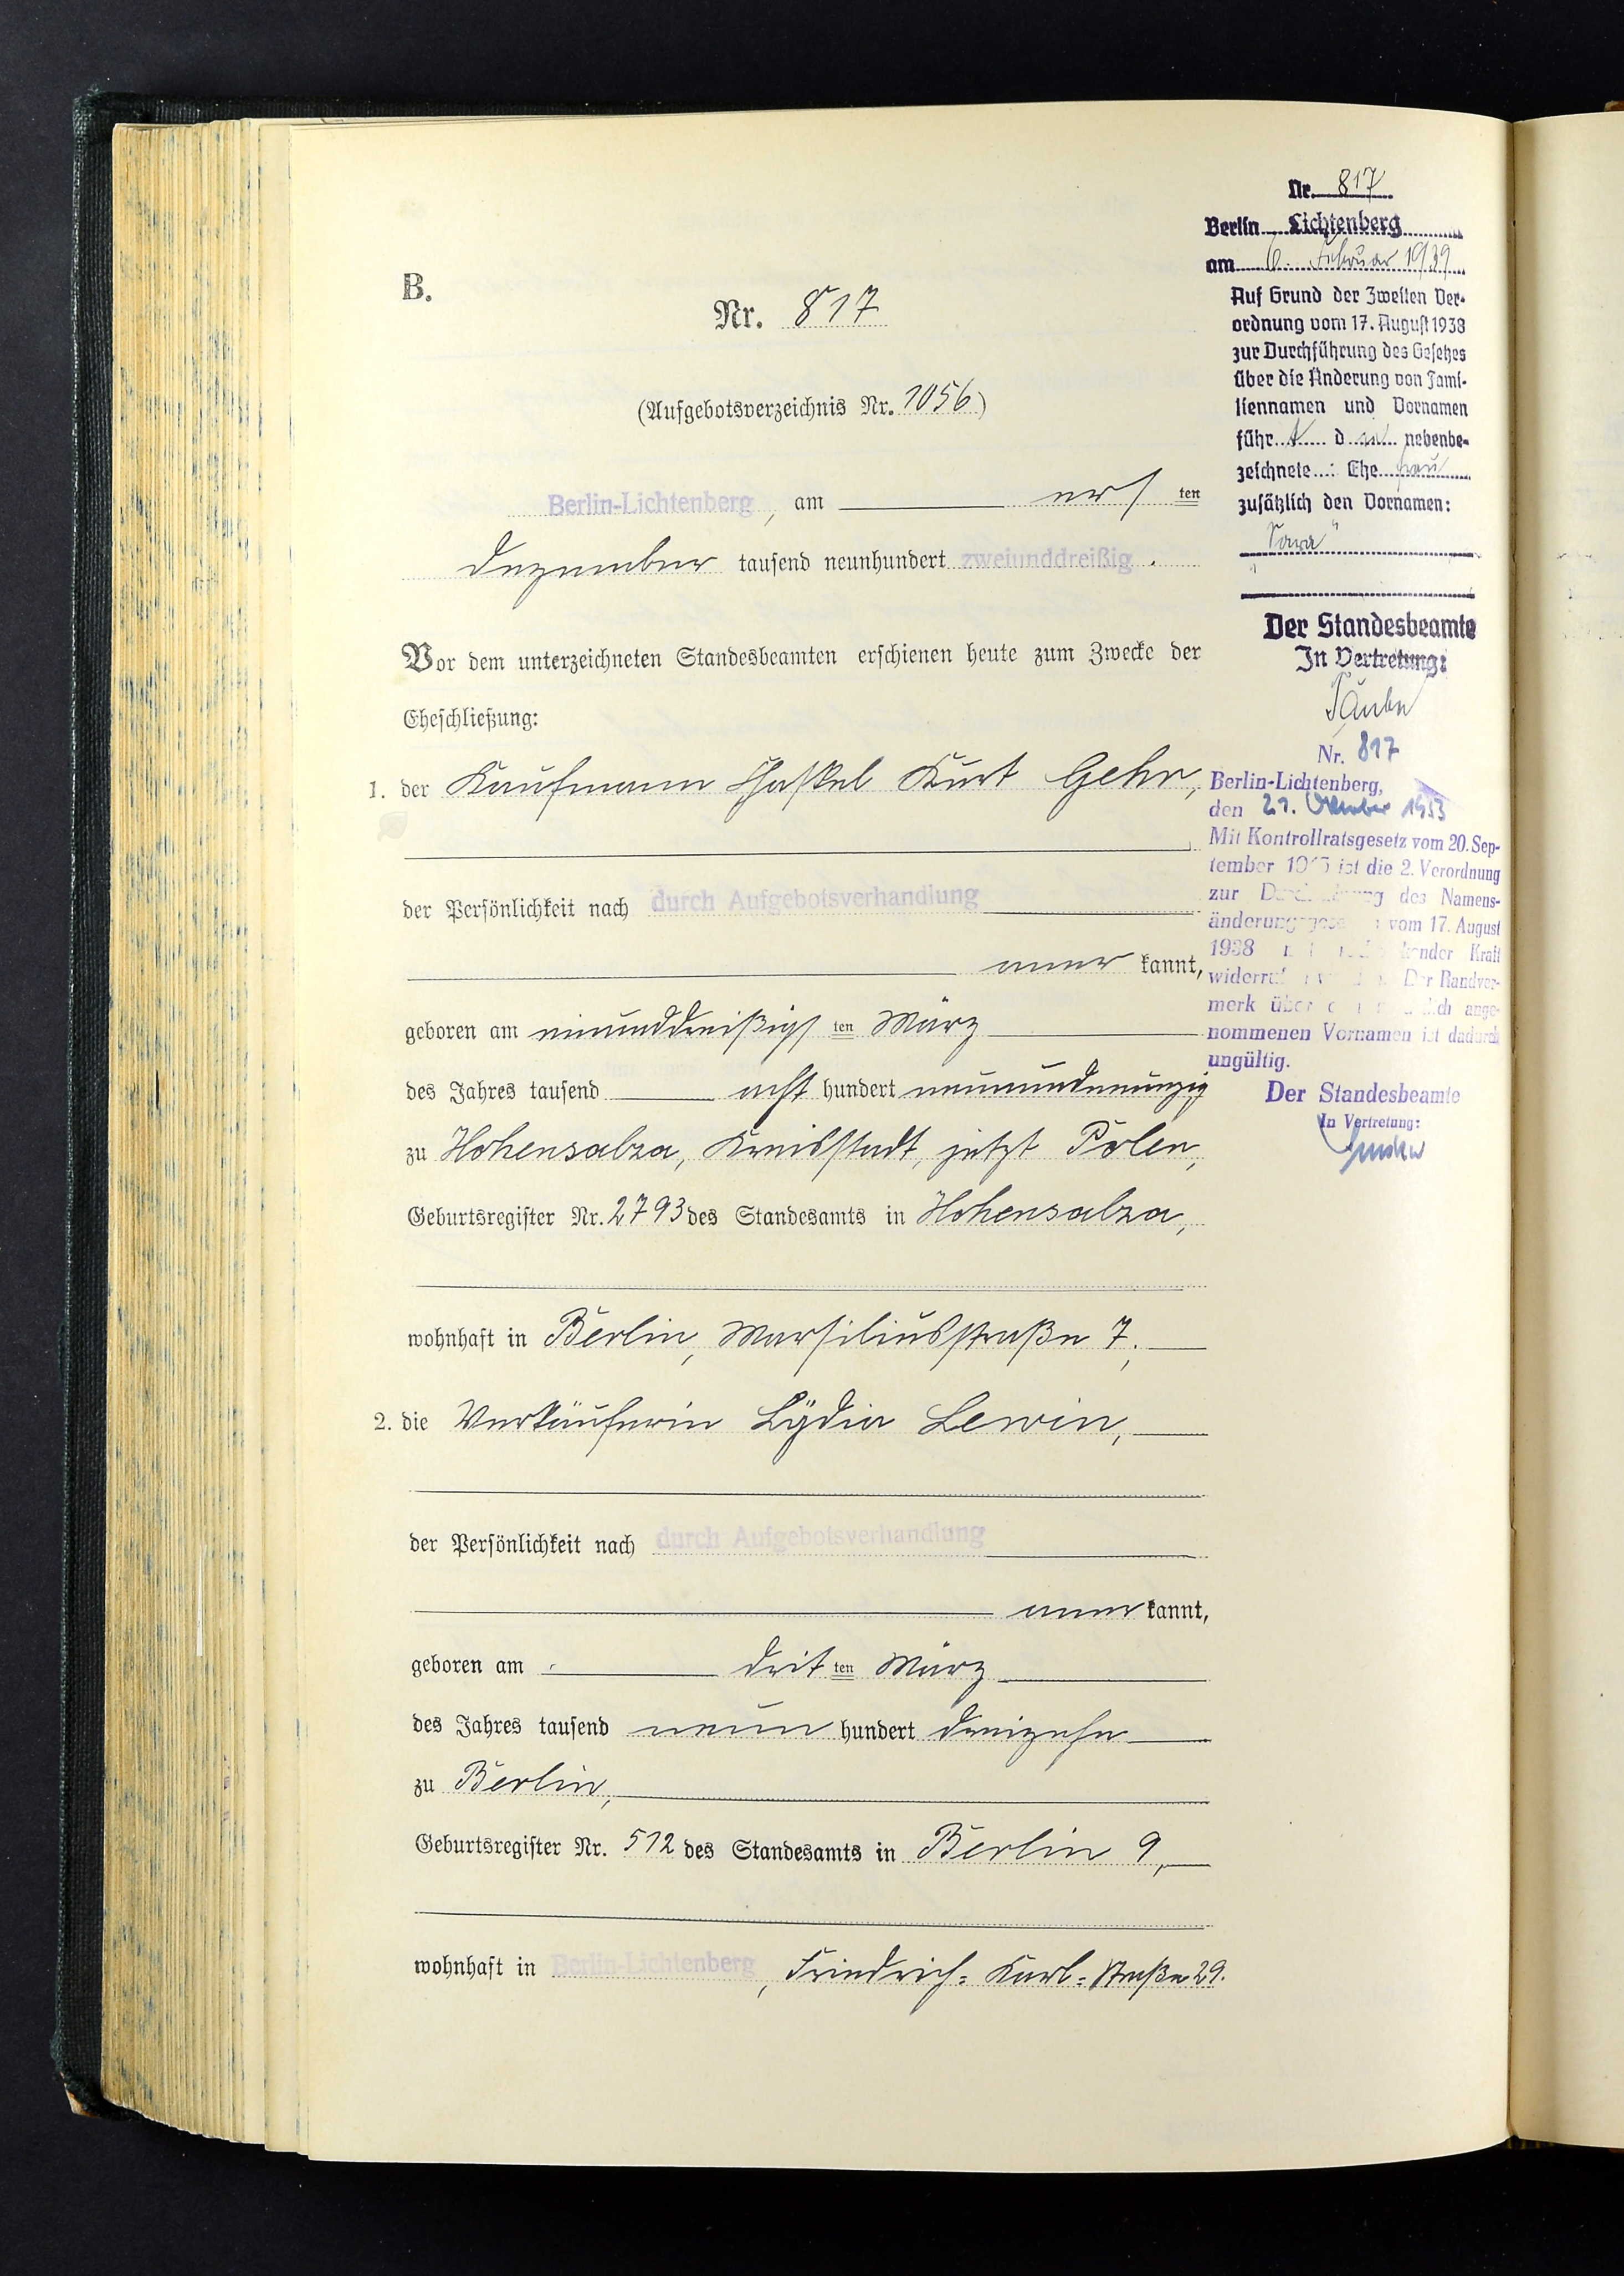 B.
Nr. 817
(Aufgebotsverzeichnis Nr. 1056)
Berlin-Lichtenberg, am ersten
Dezember tausend neunhundert zweiunddreißig.
Vor dem unterzeichneten Standesbeamten erschienen heute zum Zwecke der
Eheschließung:
1. der Kaufmann Chaskel Kurt Gehr,
der Persönlichkeit nach durch Aufgebotsverhandlung
aner kannt,
geboren am einunddreißigsten März
des Jahres tausend acht hundert neunundneunzig
zu Hohensalza, Kreisstadt, jetzt Polen,
Geburtsregister Nr. 2793 des Standesamts in Hohensalza,
wohnhaft in Berlin, Marsiliusstraße 7;
2. die Verkäuferin Lydia Lewin,
der Persönlichkeit nach durch Aufgebotsverhandlung
aner kannt,
geboren am dritten März
des Jahres tausend neun hundert dreizehn
zu Berlin,
Geburtsregister Nr. 512 des Standesamts in Berlin 9,
wohnhaft in Berlin-Lichtenberg, Friedrich-Karl-Straße 29.
Nr. 817
Berlin Lichtenberg
am 6. Februar 1939
Auf Grund der Zweiten Ver-
ordnung vom 17. August 1938
zur Durchführung des Gesetzes
über die Änderung von Fami-
liennamen und Vornamen
führt die nebenbe-
zeichnete : Ehefrau
zusätzlich den Vornamen:
"Sara"
Der Standesbeamte
In Vertretung:
Nr. 817
Berlin-Lichtenberg,
den 21. Oktober 1953
Mit Kontrollratsgesetz vom 20. Sep-
tember 1945 ist die 2. Verordnung
zur des Namens-
vom 17. August
1938 Kraft
Der Randver-
merk über ange-
nommenen Vornamen ist dadurch
ungültig.
Der Standesbeamte
In Vertretung: